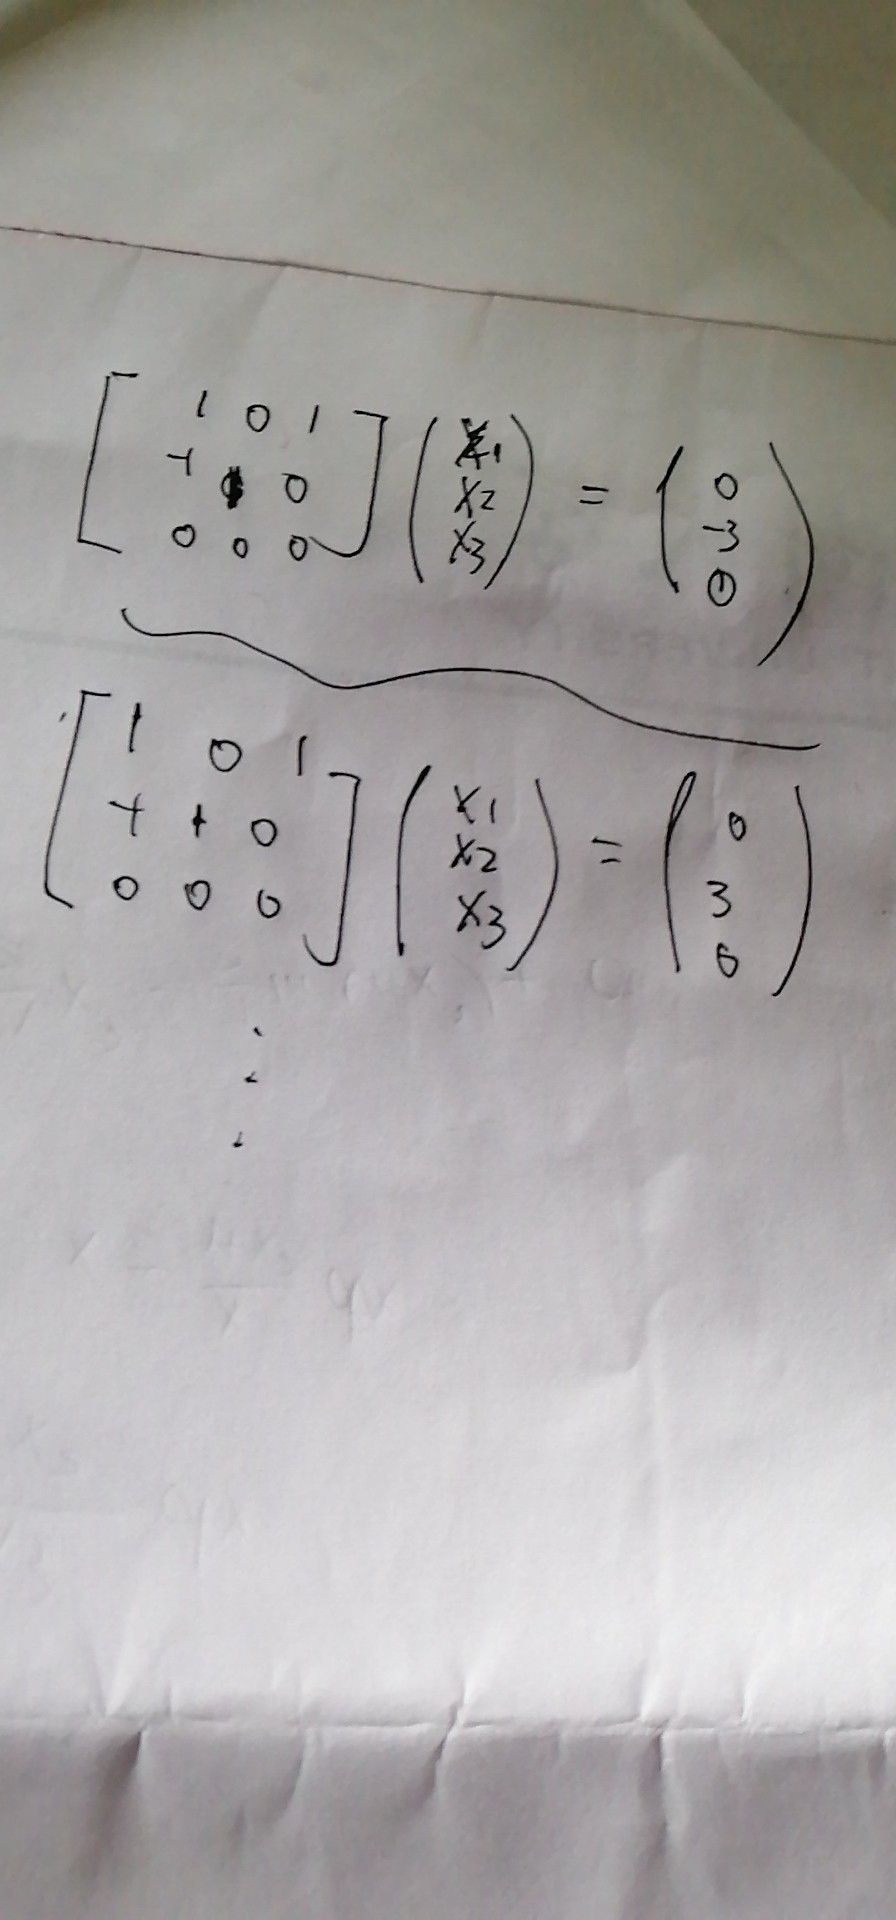 1 0 1
-1 0
0 0 0
x1
x2
x3
=
0
-3
0
1 0 1
-1 1 0
0 0 0
x1
x2
x3
=
0
3
0